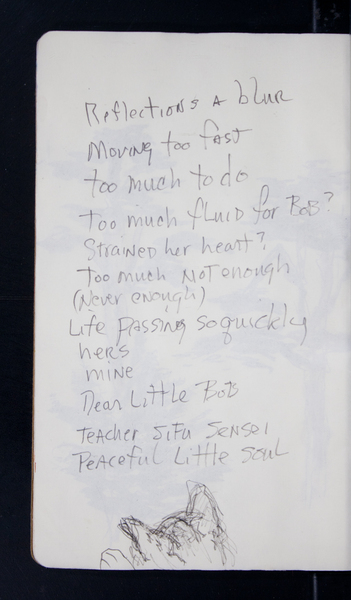 Reflections a blur
Moving too fast
too much to do
Too much fluid for Bob?
Strained her heart?
Too much not enough
(Never enough)
Life passing so quickly
hers
mine
Dear Little Bob
Teacher Sifu Sensei
Peaceful Little Soul